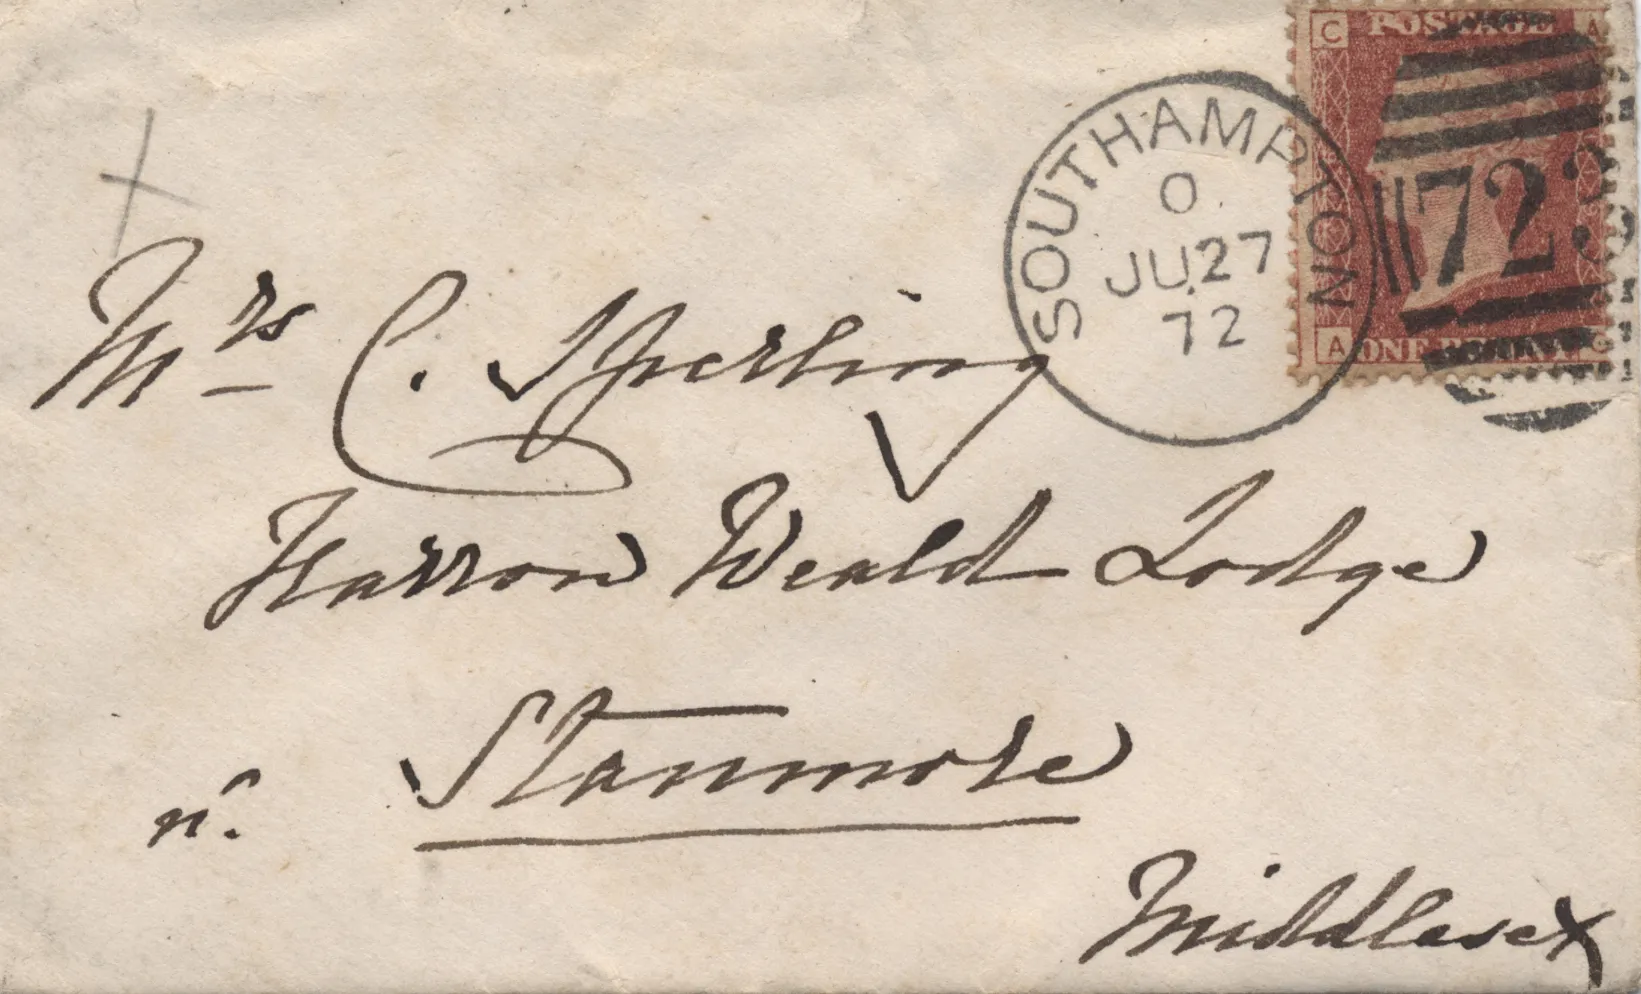 C POSTAGE A
723
A ONE PENNY C
SOUTHAMPTON
O
JU 27
72
Mrs C. Sperling
Harrow Weald Lodge
nr. Stanmore
Middlesex